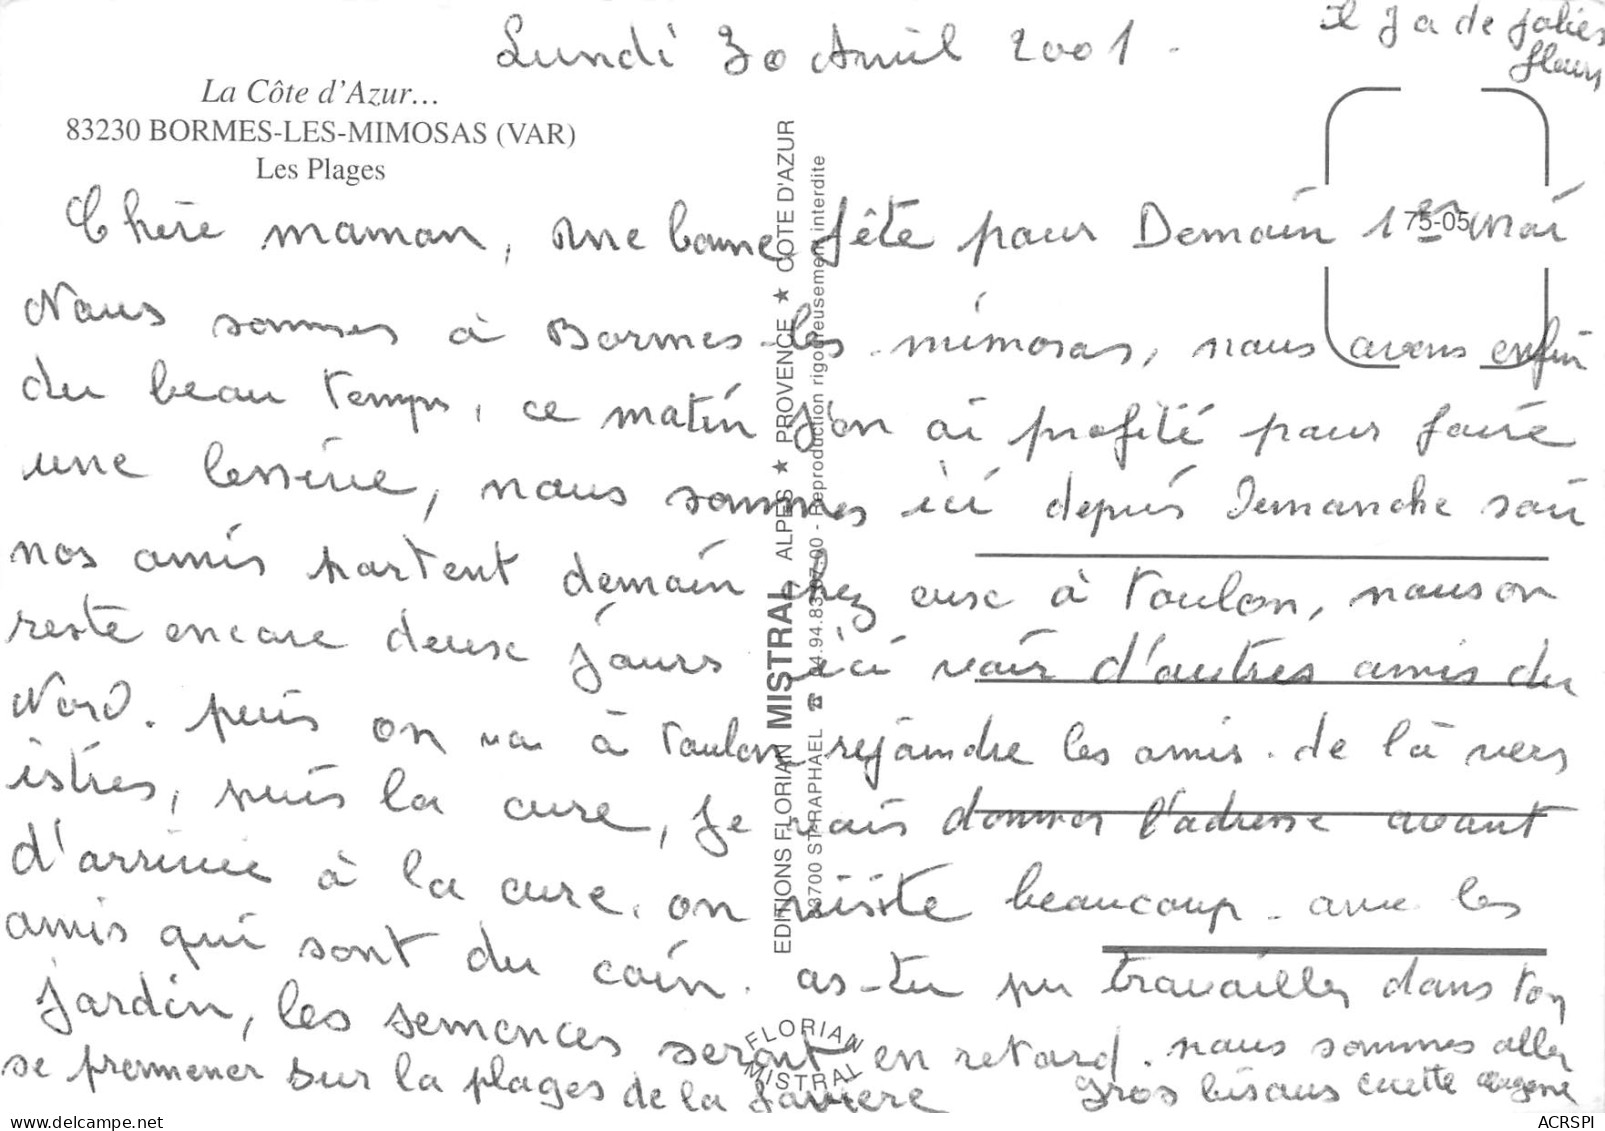 Lundi 30 Avril 2001.
Il y a de jolies
fleurs
La Côte d'Azur...
83230 BORMES-LES-MIMOSAS (VAR)
Les Plages
75-05
Chère maman, une bonne fête pour Demain 1er mai
Nous sommes à Bormes-les-mimosas, nous avons enfin
du beau temps, ce matin j'on ai profité pour faire
une lessive, nous sommes ici depuis Demanche soir
nos amis partent demain chez eux à Toulon, nous on
reste encore deux jours ici voir d'autres amis du
Nord. puis on va à Toulon rejoindre les amis. de là vers
istres, puis la cure, je vais donner l'adresse avant
d'arrivée à la cure. on visite beaucoup. avec les
amis qui sont du coin. as-tu pu travailler dans ton
jardin, les semences seront en retard. nous sommes aller
se promener sur la plages de la Favière Gros bisous
EDITIONS FLORIAN MISTRAL ALPES ★ PROVENCE ★ COTE D'AZUR
83700 ST-RAPHAEL ☎ 04.94.83.07.00 - Reproduction rigoureusement interdite
FLORIAN
MISTRAL
ACRSPI